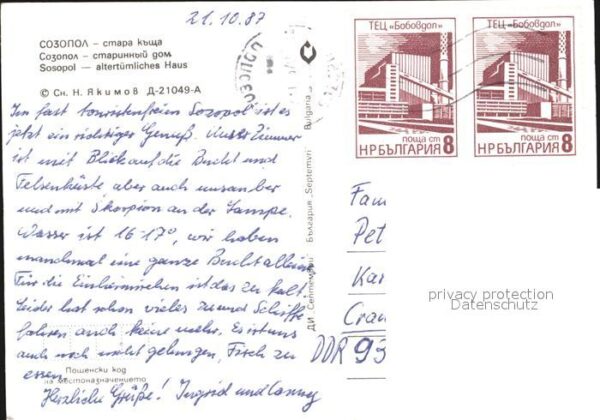 21.10.87
СОЗОПОЛ – стара къща
Созопол – старинный дом
Sosopol – altertümliches Haus
© Сн. Н. Якимов Д-21049-А
Im fast touristenfreien Sozopol ist es
jetzt ein richtiger Genuß. Unser Zimmer
ist mit Blick auf die Bucht und
Felsenküste aber auch unsauber
und mit Skorpion an der Lampe.
Wasser ist 16-17°, wir haben
manchmal eine ganze Bucht allein.
Für die Einheimischen ist das zu kalt.
Leider hat schon vieles zu und Schiffe
fahren auch keine mehr. Es ist uns
auch noch nicht gelungen, Fisch zu
essen.
Пощенски код
на местоназначението
Herzliche Grüße! Ingrid und
ДИ „Септември" България „Septemvri" Bulgaria
СОЗОПОЛ
ТЕЦ „Бобовдол"
поща ст 8
НР БЪЛГАРИЯ
ТЕЦ „Бобовдол"
поща ст 8
НР БЪЛГАРИЯ
Fam
Pet
Kar
Cra
DDR 95
privacy protection
Datenschutz